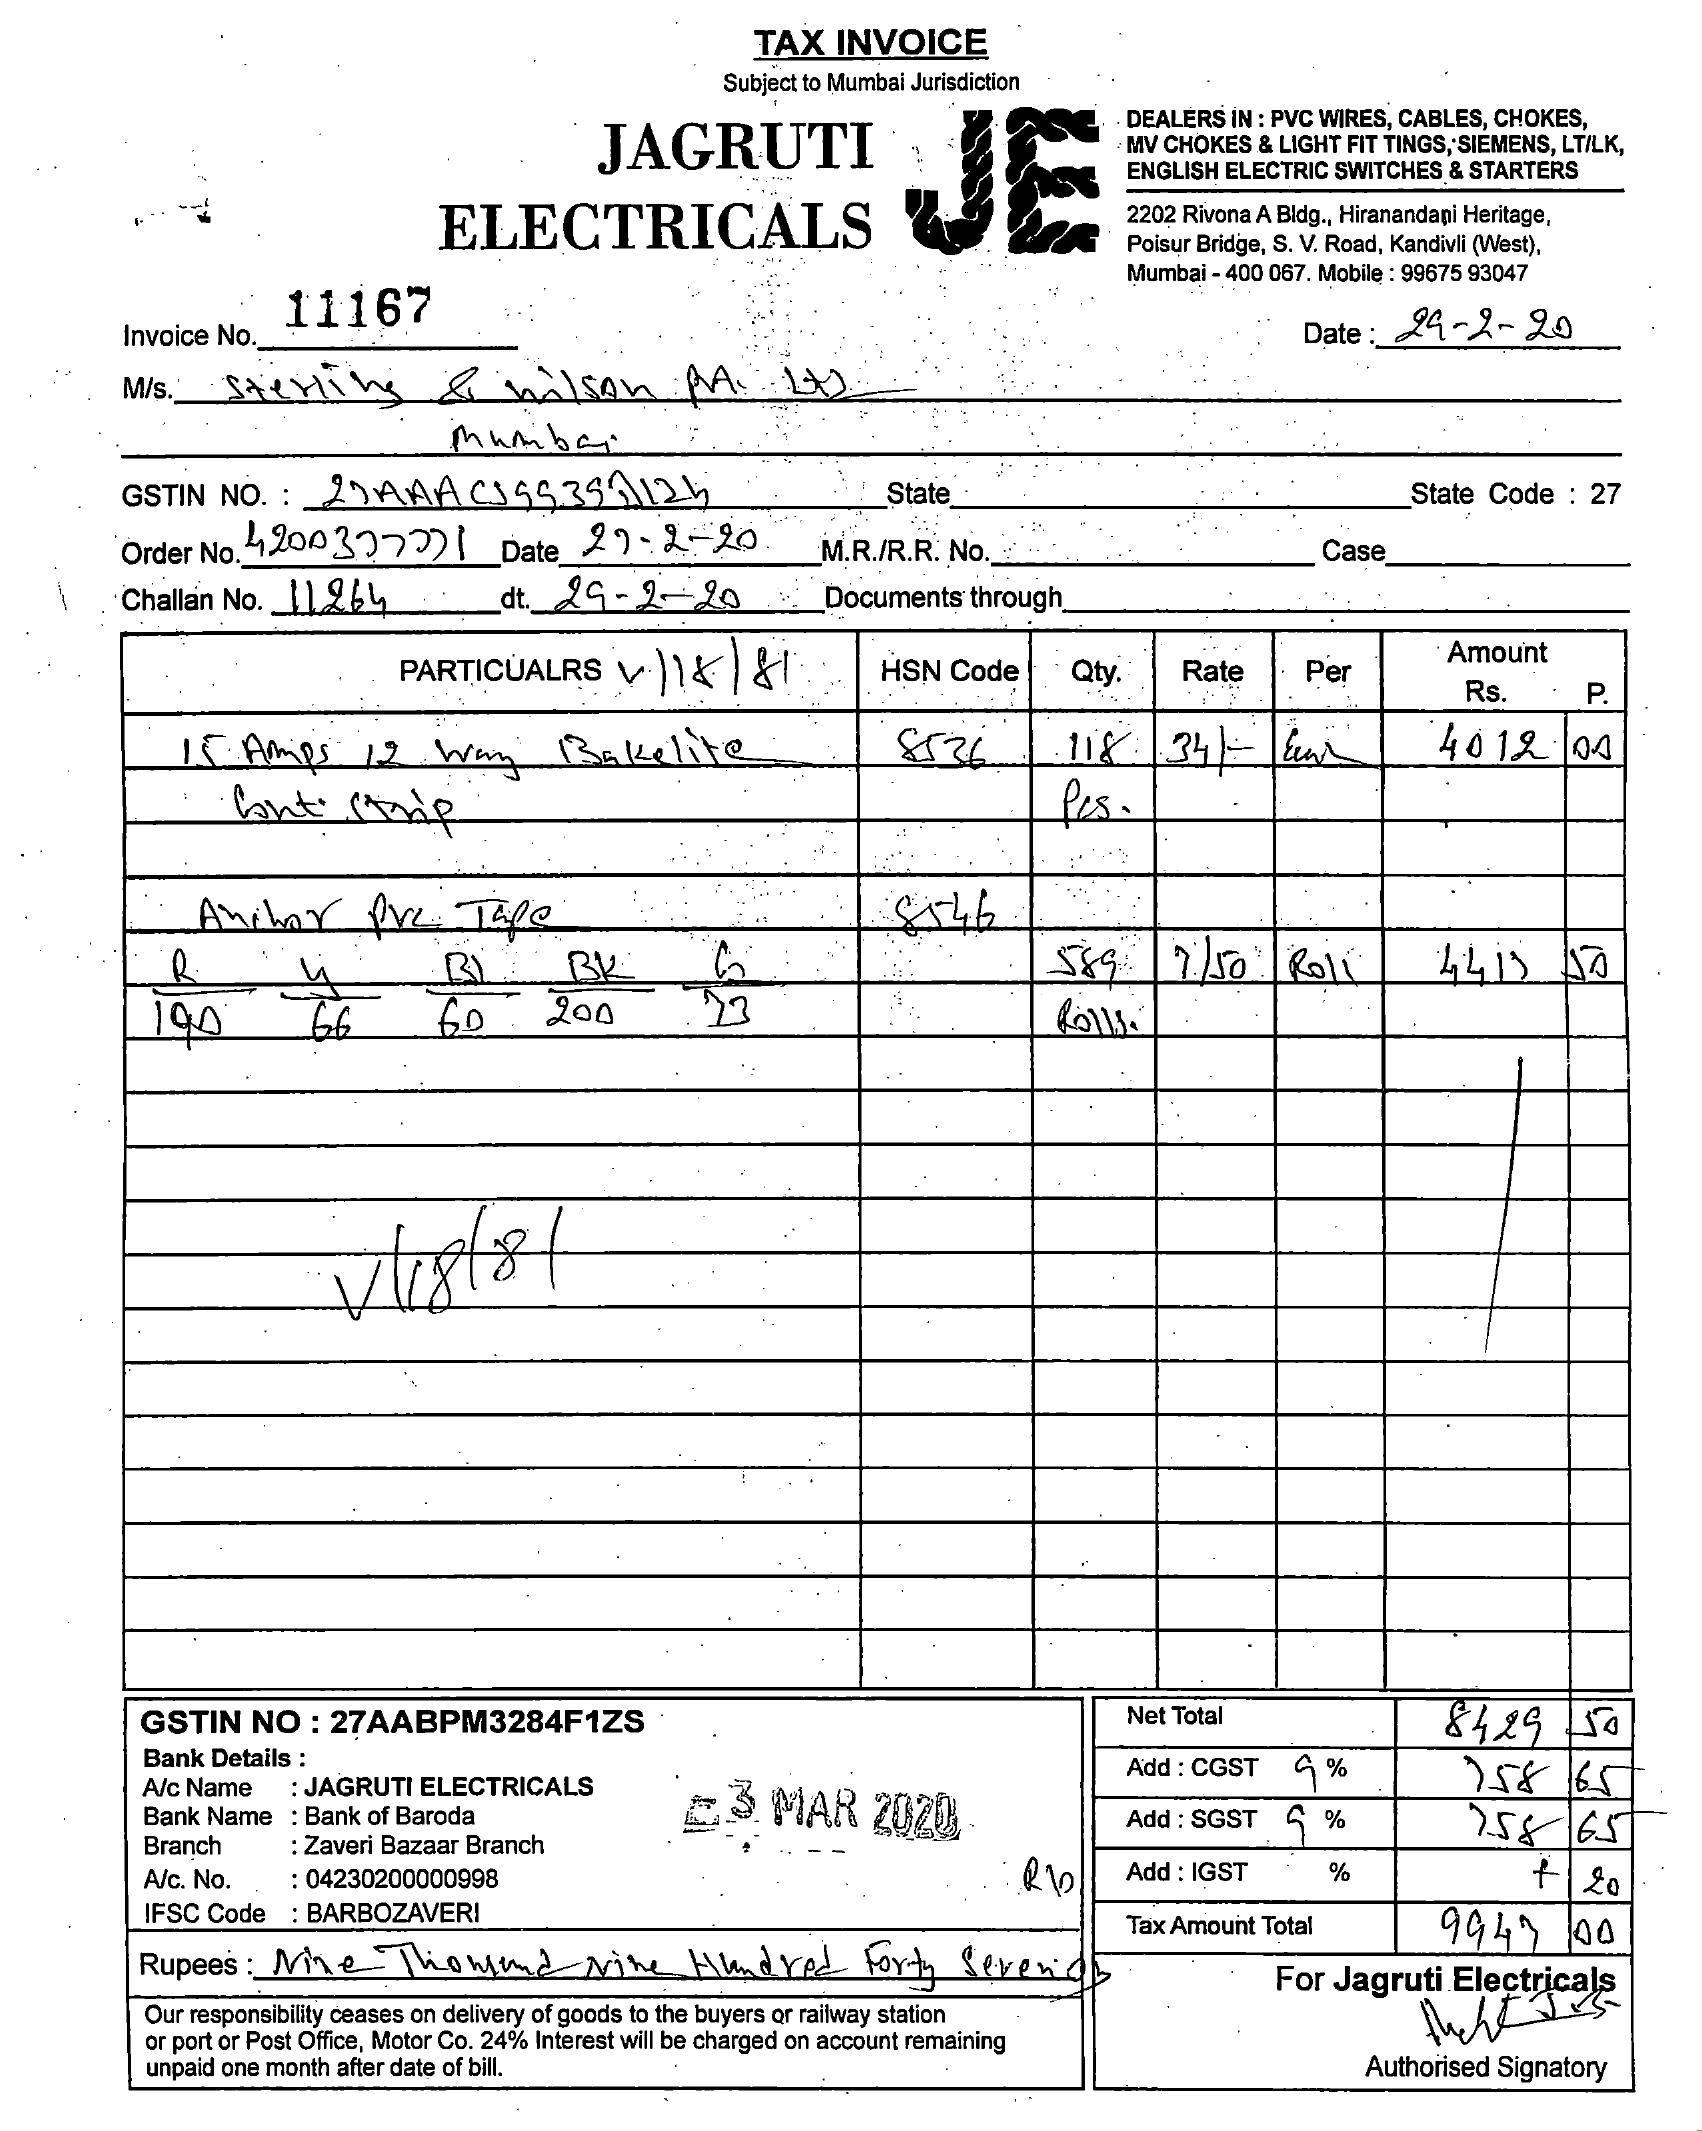 TAX INVOICE
Subject to Mumbai Jurisdiction
JAGRUTI
ELECTRICALS
JE
DEALERS IN : PVC WIRES, CABLES, CHOKES,
MV CHOKES & LIGHT FIT TINGS, SIEMENS, LT/LK,
ENGLISH ELECTRIC SWITCHES & STARTERS
2202 Rivona A Bldg., Hiranandani Heritage,
Poisur Bridge, S. V. Road, Kandivli (West),
Mumbai - 400 067. Mobile : 99675 93047
Invoice No. 11167 Date : 29-2-20
M/s. Sterling & wilson Pvt. Ltd
Mumbai
GSTIN NO. : State State Code : 27
Order No. 4200377771 Date 27-2-20 M.R./R.R. No. Case
Challan No. 11264 dt. 29-2-20 Documents through
PARTICUALRS V/118/81 HSN Code Qty. Rate Per Amount
Rs. P.
15 Amps 12 Way Bakelite 8536 118 34/- Each 4012 00
Cont. Strip Pcs.
Anchor Pvc Tape 8546
R Y Bl BK G 589 7/50 Roll 4417 50
190 66 60 200 73 Rolls.
V/118/81
GSTIN NO : 27AABPM3284F1ZS
Bank Details :
A/c Name : JAGRUTI ELECTRICALS
Bank Name : Bank of Baroda
Branch : Zaveri Bazaar Branch
A/c. No. : 04230200000998
IFSC Code : BARBOZAVERI
3 MAR 2020
Net Total 8429 50
Add : CGST 9 % 758 65
Add : SGST 9 % 758 65
R/o
Add : IGST % + 20
Tax Amount Total 9947 00
Rupees : Nine Thousand Nine Hundred Forty Seven
Our responsibility ceases on delivery of goods to the buyers or railway station
or port or Post Office, Motor Co. 24% Interest will be charged on account remaining
unpaid one month after date of bill.
For Jagruti Electricals
Authorised Signatory